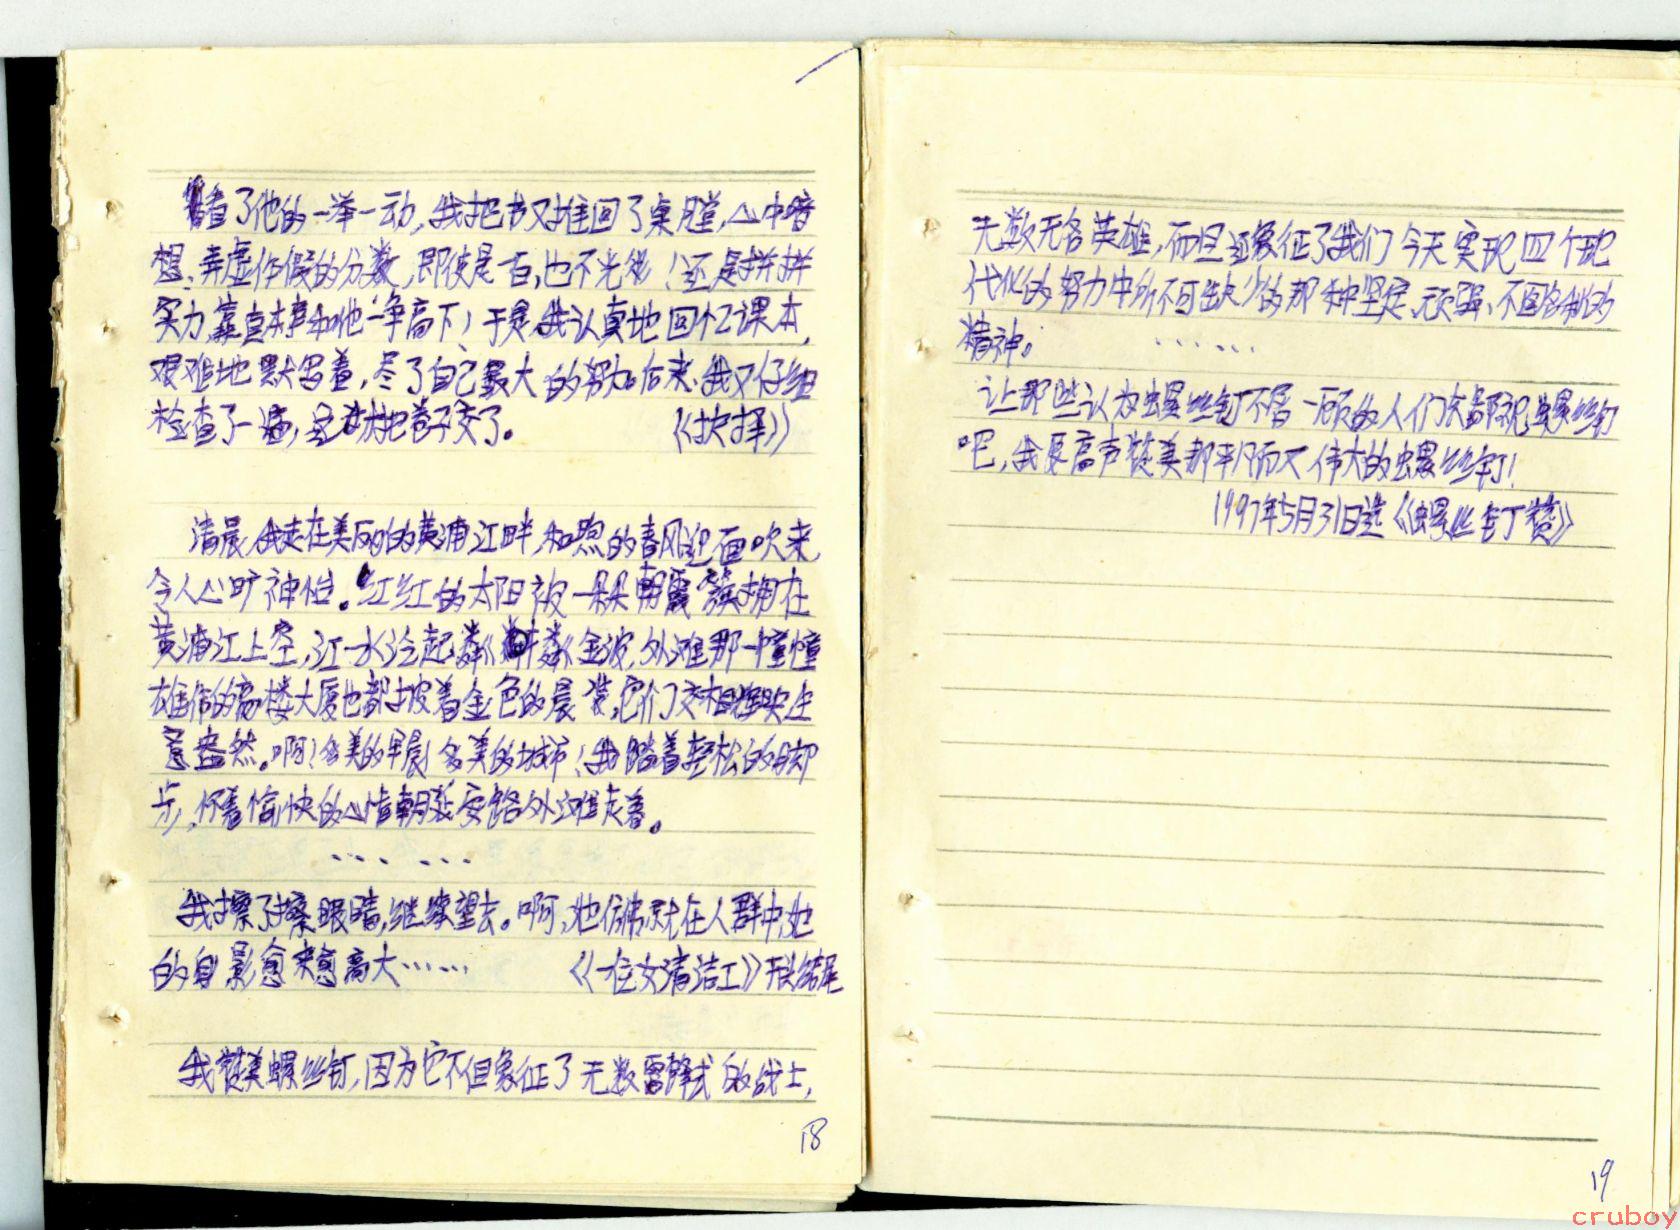 看了他的一举一动,我把书又推回了桌膛,心中暗
想:弄虚作假的分数,即使是一百,也不光彩!还是拼拼
实力,靠真本事和他争高下!于是,我认真地回忆课本,
艰难地默写着,尽了自己最大的努力。后来,我又仔细
检查了一遍,坚决把卷子交了。 《抉择》
清晨,我走在美丽的黄浦江畔,和煦的春风迎面吹来,
令人心旷神怡。红红的太阳被一朵朵朝霞簇拥在
黄浦江上空,江水泛起粼粼金波,外滩那一幢幢
雄伟的高楼大厦也都披着金色的晨装,它们交相辉映生
意盎然。啊!多美的早晨!多美的城市!我踏着轻松的脚
步,怀着愉快的心情朝延安路外滩走着。
……
我擦了擦眼睛,继续望去。啊,她仿佛就在人群中,她
的身影愈来愈高大…… 《一位女清洁工》开头结尾
我赞美螺丝钉,因为它不但象征了无数雷锋式的战士,
18
无数无名英雄,而且还象征了我们今天实现四个现
代化的努力中所不可缺少的那种坚定、顽强、不图名利的
精神。 ……
让那些认为螺丝钉不屑一顾的人们去鄙视螺丝钉
吧,我要高声赞美那平凡而又伟大的螺丝钉!
1997年5月31日选《螺丝钉赞》
19
cruboy